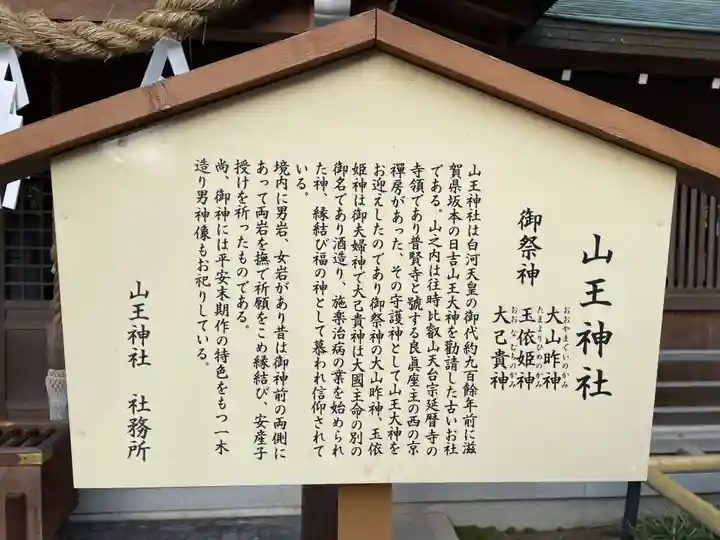 山王神社
御祭神
大山昨神
おおやまぐいのかみ
玉依姫神
たまよりひめのかみ
大己貴神
おおなむちのかみ
山王神社は白河天皇の御代約九百餘年前に滋
賀県坂本の日吉山王大神を勸請した古いお社
である。山之内は往時比叡山天台宗延暦寺の
寺領であり普賢寺と號する良眞座主の西の京
禪房があった、その守護神として山王大神を
お迎えしたのであり御祭神の大山昨神、玉依
姫神は御夫婦神で大己貴神は大國主命の別の
御名であり酒造り、施楽治病の業を始められ
た神、縁結び福の神として慕われ信仰されて
いる。
境内に男岩、女岩があり昔は御神前の両側に
あって両岩を撫で祈願をこめ縁結び、安産子
授けを祈ったものである。
尚、御神には平安末期作の特色をもつ一木
造り男神像もお祀りしている。
山王神社　社務所